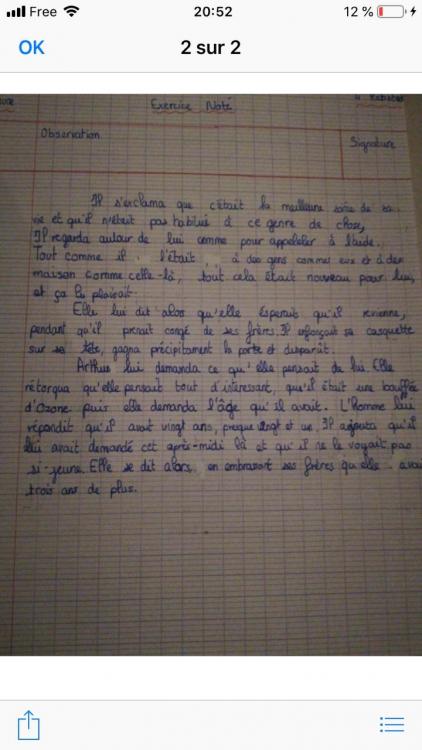 Free 20:52 12 %
OK 2 sur 2
Exercice Noté
Observation
Signature
Il s'exclama que c'était la meilleure soirée de sa
vie et qu'il n'était pas habitué à ce genre de chose,
Il regarda autour de lui comme pour appeleler à l'aide.
Tout comme il l'était à des gens comme eux et à des
maison comme celle-là, tout cela était nouveau pour lui,
et ça lui plairait.
Elle lui dit alors qu'elle esperait qu'il revienne,
pendant qu'il prenait congé de ses frères. Il enfonçait sa casquette
sur sa tête, gagna précipitament la porte et disparût.
Arthur lui demanda ce qu'elle pensait de lui. Elle
rétorqua qu'elle pensait tout d'interessant, qu'il était une bouffée
d'Ozone puis elle demanda l'âge qu'il avait. L'Homme lui
répondit qu'il avait vingt ans, presque vingt et un, Il ajouta qu'il
lui avait demandé cet après-midi là et qu'il ne le voyait pas
si-jeune. Elle se dit alors, en embrasant ses frères qu'elle avai
trois ans de plus.